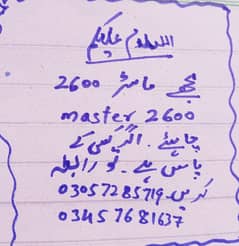 السلام علیکم
مجھے ماسٹر 2600
master 2600
چاہیئے. اگر کسی کے
پاس ہے. تو رابطہ
کریں. 03057285719
03457681637